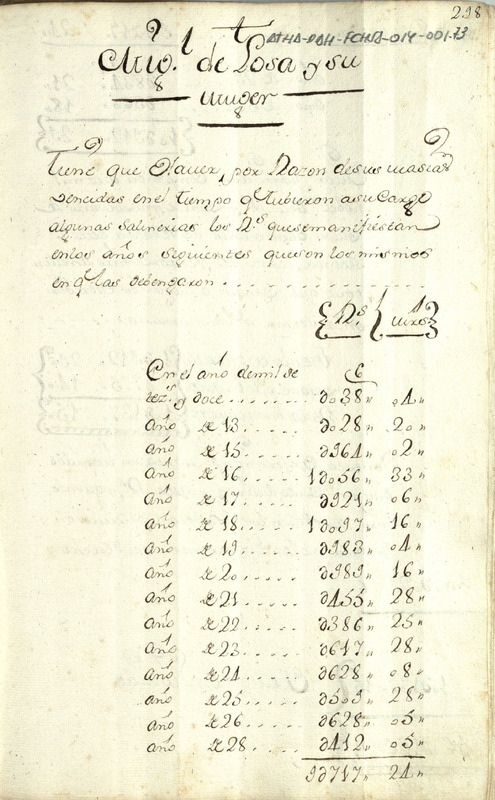 298
ATHA-DAH-FCHSA-014-001-13
Mig.l de Losa y su
muger
Tiene que Haver, por Razon de sus masias
vencidas en el tiempo q.e tubieron a su Cargo
algunas salinerias los R.s que se manifiestan
en los años siguientes que son los mismos
en q.e las debengaron . . . . . . . . . . . .
R.s mrs
En el año de mil se
tez.s y doce..... ∂o38,, o4,,
año de 13...... ∂o28,, 20,,
año de 15...... ∂964,, o2,,
año de 16...... 1∂o56,, 33,,
año de 17...... ∂921,, o6,,
año de 18...... 1∂o97,, 16,,
año de 19...... ∂983,, o4,,
año de 20...... ∂989,, 16,,
año de 21...... ∂455,, 28,,
año de 22...... ∂386,, 25,,
año de 23...... ∂617,, 28,,
año de 24...... ∂628,, o8,,
año de 25...... ∂509,, 28,,
año de 26...... ∂628,, o5,,
año de 28..... ∂412,, o5,,
9∂717,, 24,,